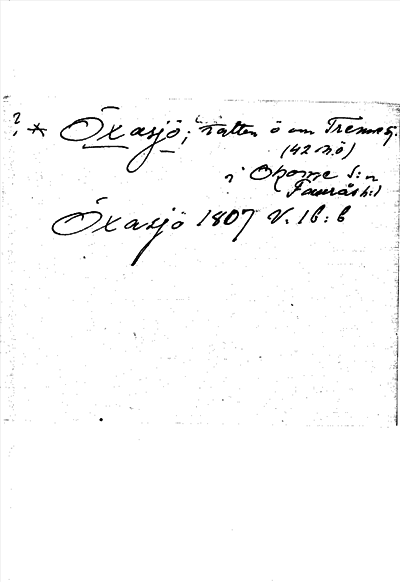 ? * Öxasjö; vatten ö om Tremo sj.
(42 n.ö)
i Okome s:n
Faurås h:d
Öxasjö 1807 V. 16:6